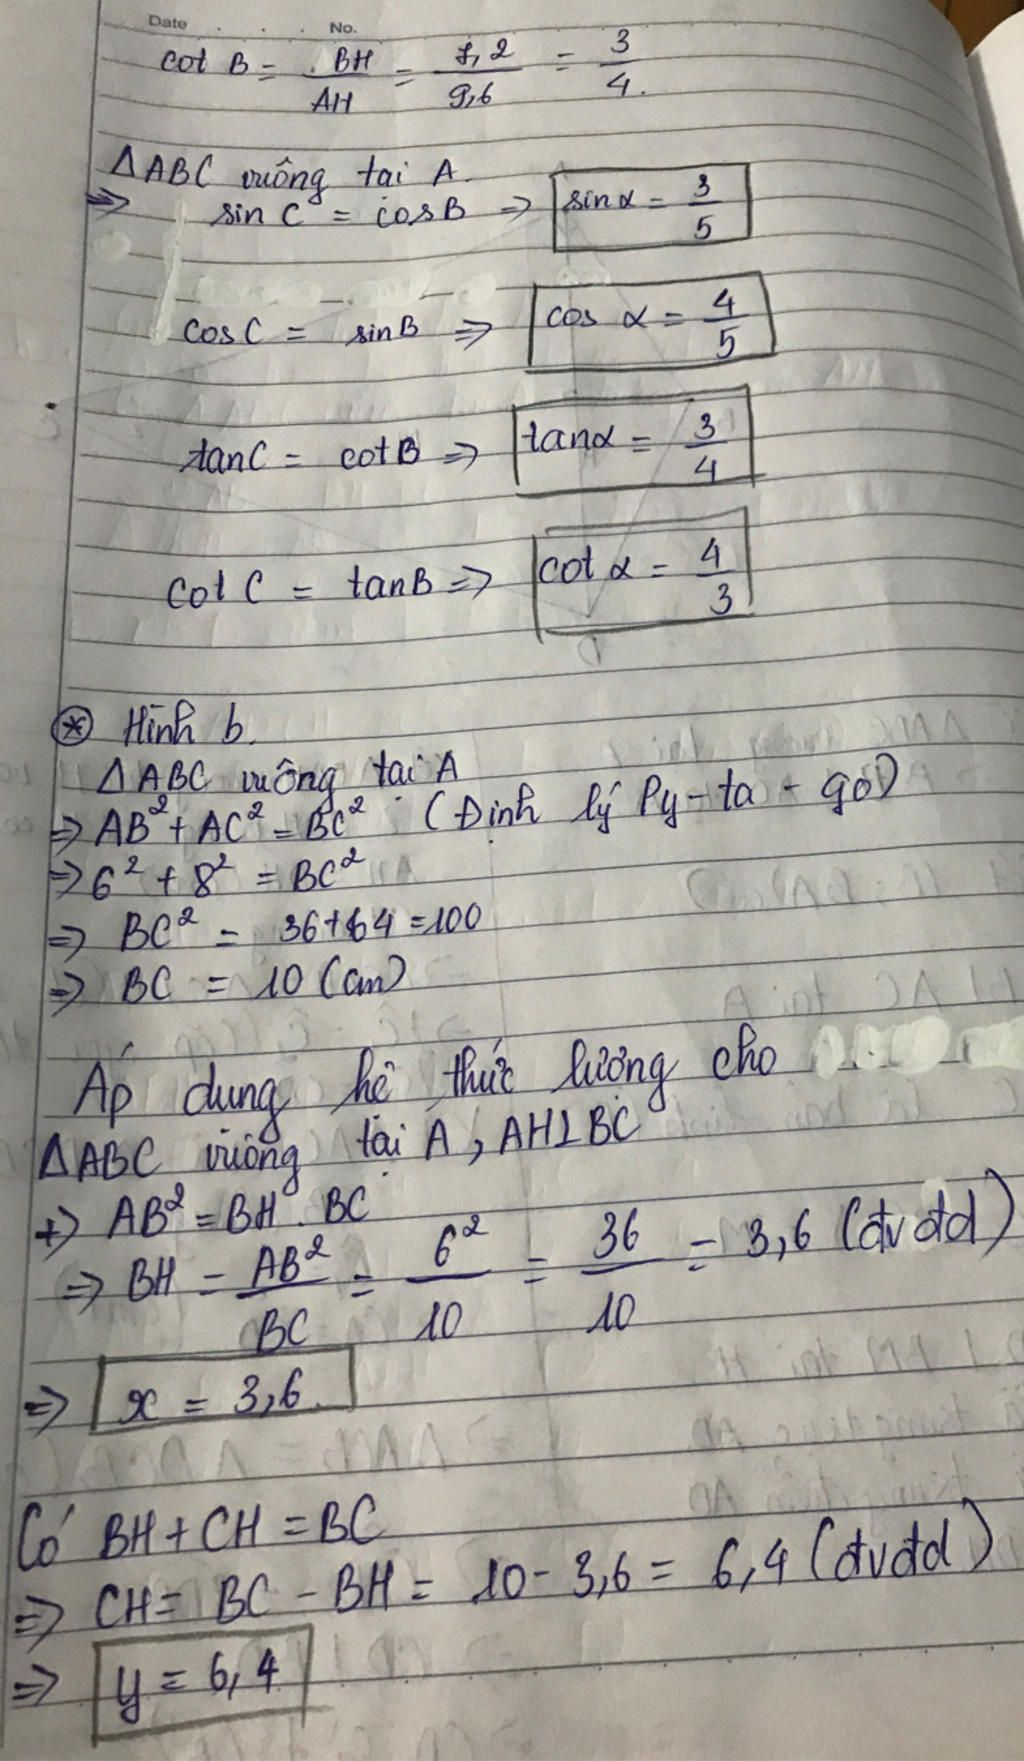 Date No.
cot B = BH/AH = 7,2/9,6 = 3/4.
ΔABC vuông tại A.
⇒ sin C = cos B ⇒ sin α = 3/5
cos C = sin B ⇒ cos α = 4/5
tan C = cot B ⇒ tan α = 3/4
cot C = tan B ⇒ cot α = 4/3
* Hình b.
ΔABC vuông tại A
⇒ AB² + AC² = BC² (Định lý Py-ta-go)
⇒ 6² + 8² = BC²
⇒ BC² = 36+64 = 100
⇒ BC = 10 (cm)
Áp dụng hệ thức lượng cho
ΔABC vuông tại A, AH⊥BC
+) AB² = BH . BC
⇒ BH = AB²/BC = 6²/10 = 36/10 = 3,6 (đvđd)
⇒ x = 3,6.
Có BH + CH = BC
⇒ CH = BC - BH = 10 - 3,6 = 6,4 (đvđd)
⇒ y = 6,4